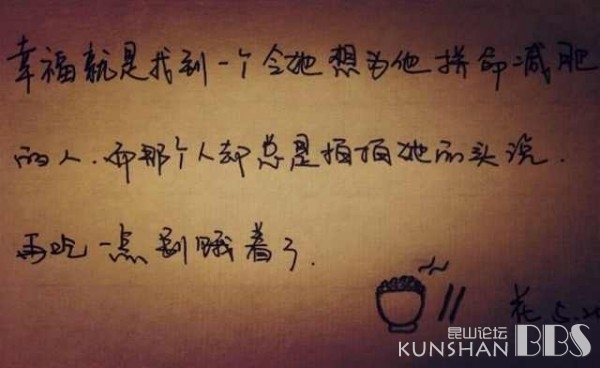 幸福就是找到一个令她想为他拼命减肥
的人.而那个人却总是拍拍她的头说.
再吃一点别饿着了.
花 5.2
昆山论坛
KUNSHAN BBS